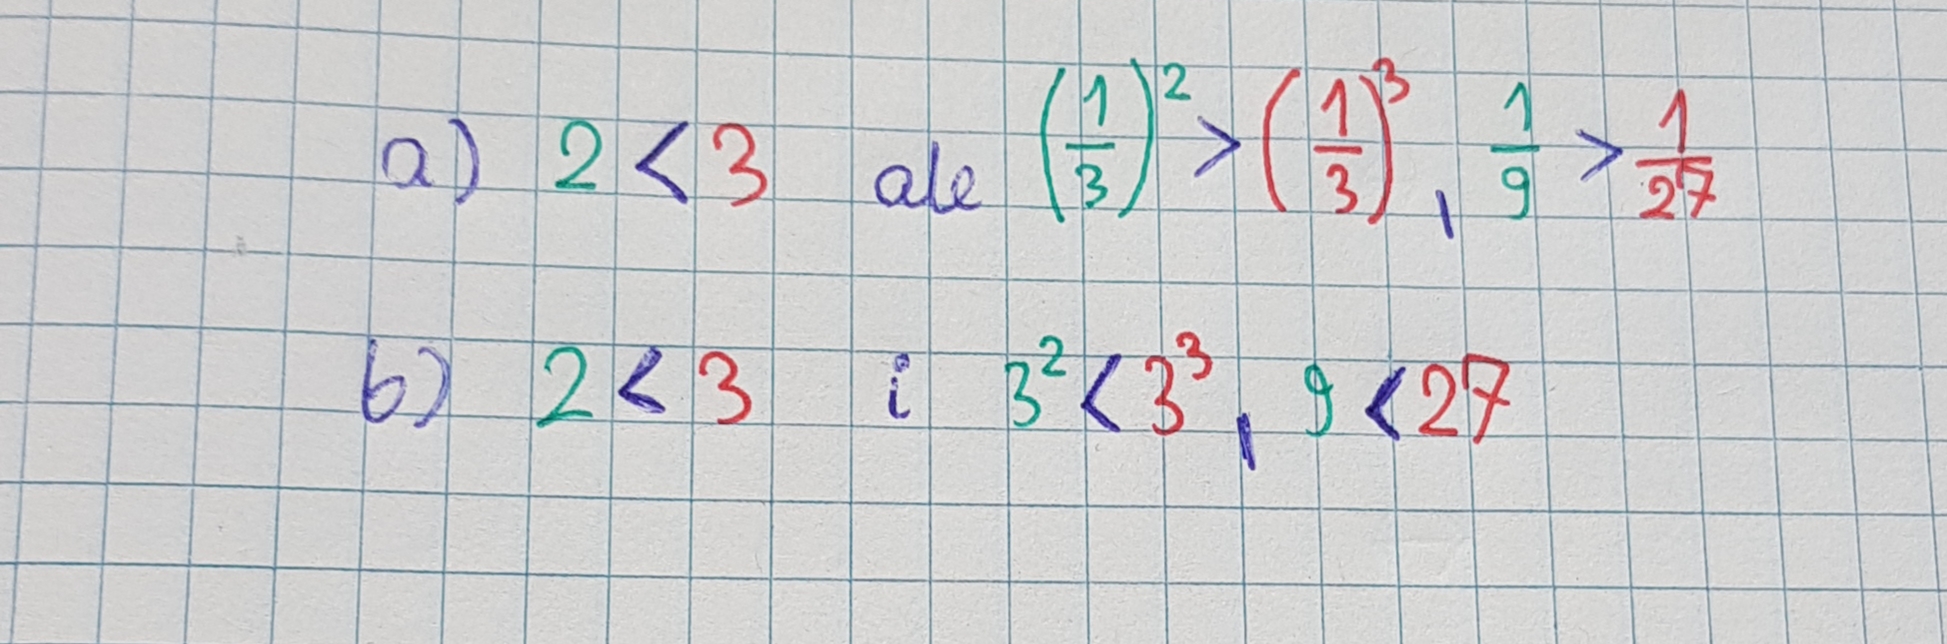 a) 2 < 3 ale (1/3)² > (1/3)³, 1/9 > 1/27
b) 2 < 3 i 3² < 3³, 9 < 27